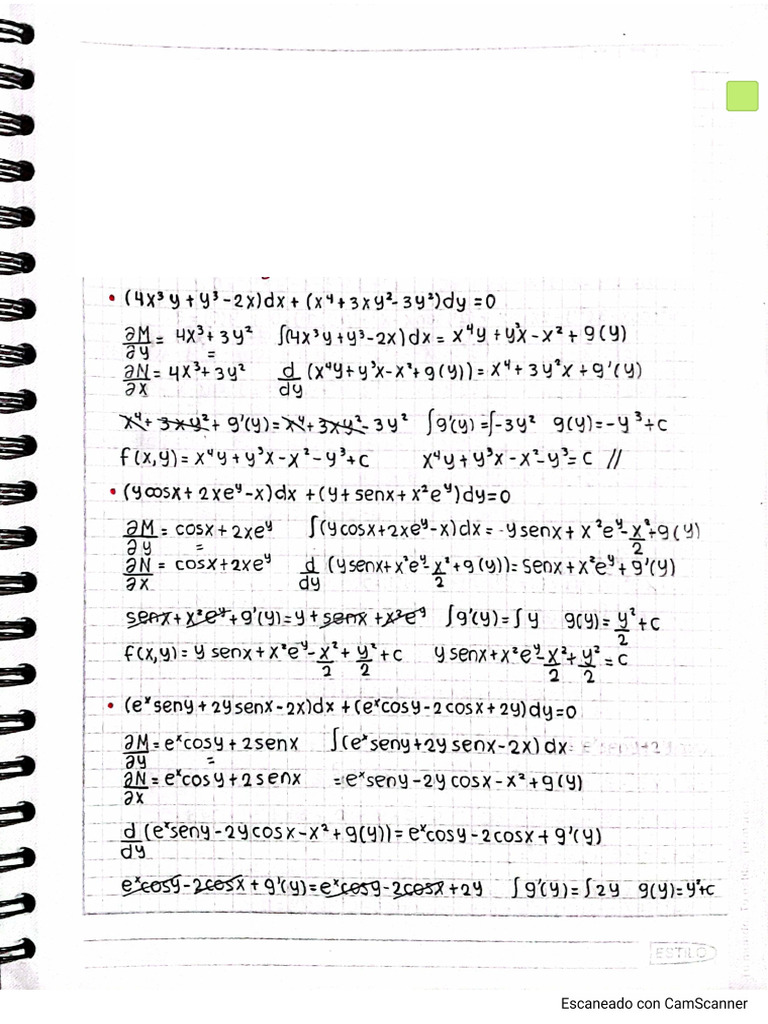 • (4x³y + y³ - 2x)dx + (x⁴ + 3xy² - 3y²)dy = 0
∂M/∂y = 4x³ + 3y² ∫(4x³y + y³ - 2x)dx = x⁴y + y³x - x² + g(y)
=
∂N/∂x = 4x³ + 3y² d/dy (x⁴y + y³x - x² + g(y)) = x⁴ + 3y²x + g'(y)
x⁴ + 3xy² + g'(y) = x⁴ + 3xy² - 3y² ∫g'(y) = ∫-3y² g(y) = -y³ + c
f(x,y) = x⁴y + y³x - x² - y³ + c x⁴y + y³x - x² - y³ = c //
• (y cosx + 2xeʸ - x)dx + (y + senx + x²eʸ)dy = 0
∂M/∂y = cosx + 2xeʸ ∫(y cosx + 2xeʸ - x)dx = y senx + x²eʸ - x²/2 + g(y)
=
∂N/∂x = cosx + 2xeʸ d/dy (y senx + x²eʸ - x²/2 + g(y)) = senx + x²eʸ + g'(y)
senx + x²eʸ + g'(y) = y + senx + x²eʸ ∫g'(y) = ∫y g(y) = y²/2 + c
f(x,y) = y senx + x²eʸ - x²/2 + y²/2 + c y senx + x²eʸ - x²/2 + y²/2 = c
• (eˣseny + 2y senx - 2x)dx + (eˣcosy - 2cosx + 2y)dy = 0
∂M/∂y = eˣcosy + 2senx ∫(eˣseny + 2y senx - 2x)dx
=
∂N/∂x = eˣcosy + 2senx = eˣseny - 2y cosx - x² + g(y)
d/dy (eˣseny - 2y cosx - x² + g(y)) = eˣcosy - 2cosx + g'(y)
eˣcosy - 2cosx + g'(y) = eˣcosy - 2cosx + 2y ∫g'(y) = ∫2y g(y) = y² + c
ESTILO
Escaneado con CamScanner